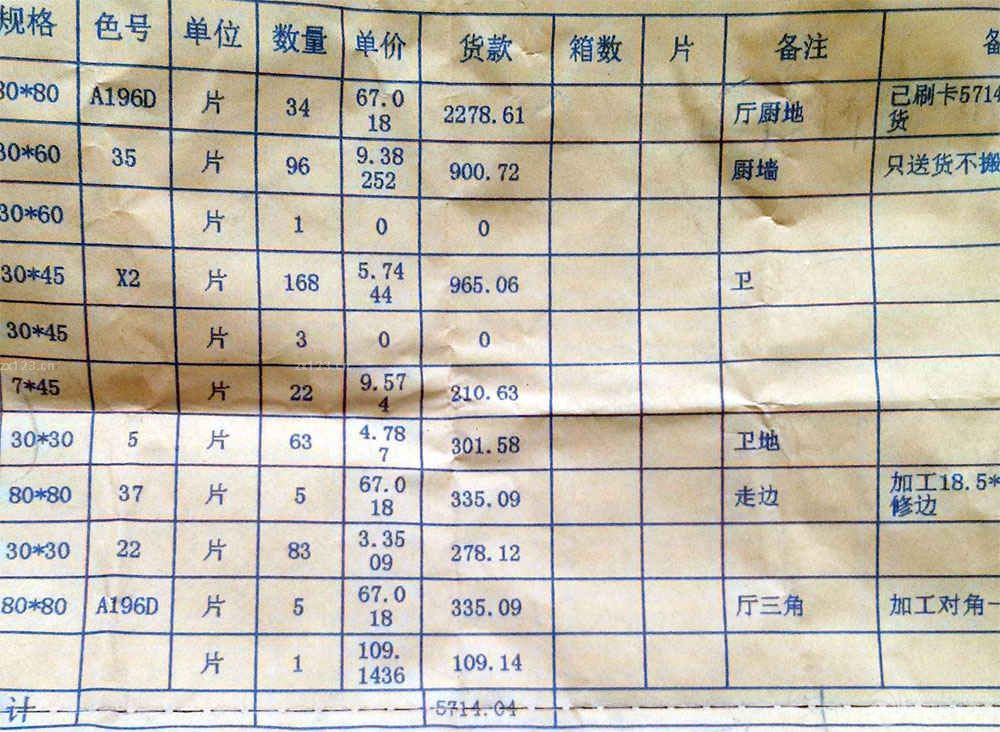 规格 色号 单位 数量 单价 货款 箱数 片 备注
80*80 A196D 片 34 67.018 2278.61 厅厨地 已刷卡5714货
30*60 35 片 96 9.38252 900.72 厨墙 只送货不搬
30*60 片 1 0 0
30*45 X2 片 168 5.7444 965.06 卫
30*45 片 3 0 0
zx123.cn zx123.cn zx123.cn
7*45 片 22 9.574 210.63
30*30 5 片 63 4.787 301.58 卫地
80*80 37 片 5 67.018 335.09 走边 加工18.5*修边
30*30 22 片 83 3.3509 278.12
80*80 A196D 片 5 67.018 335.09 厅三角 加工对角一
片 1 109.1436 109.14
计 5714.04